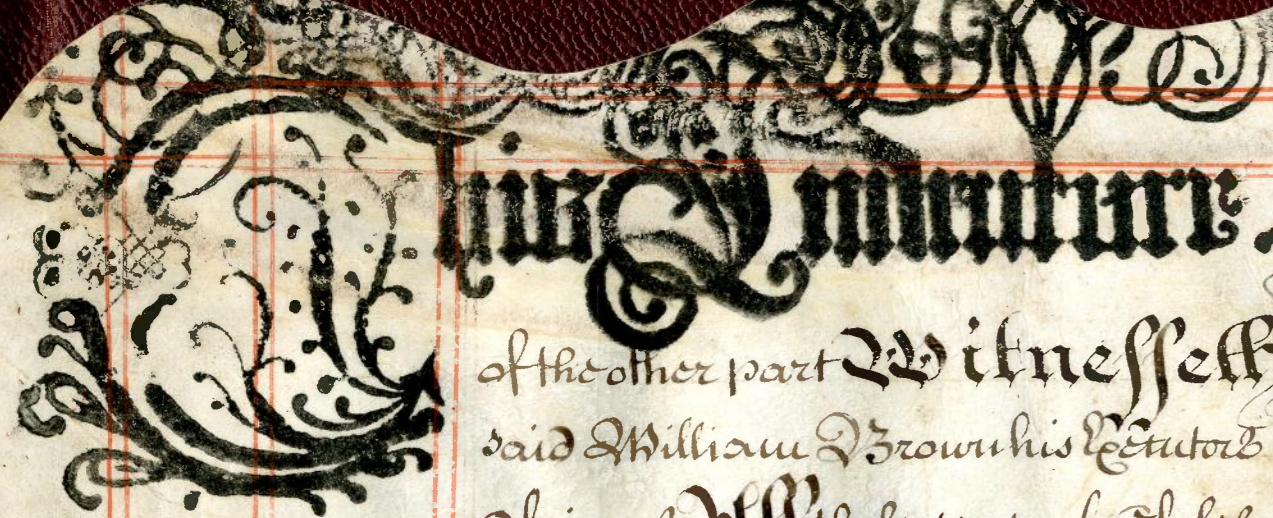 This Indenture
of the other part Witnesseth
said William Brown his Executors